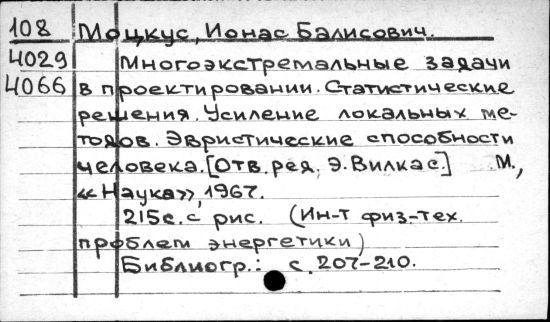 108 Моцкус, Ионас Балисович.
4029 Многоэкстремальные задачи
4066 в проектировании. Статистические
решения. Усиление локальных ме-
тодов. Эвристические способности
человека. [Отв. ред. Э. Вилкас.] М.,
«Наука», 1967.
215 с. с рис. (Ин-т физ.-тех.
проблем энергетики)
Библиогр.: с. 207-210.